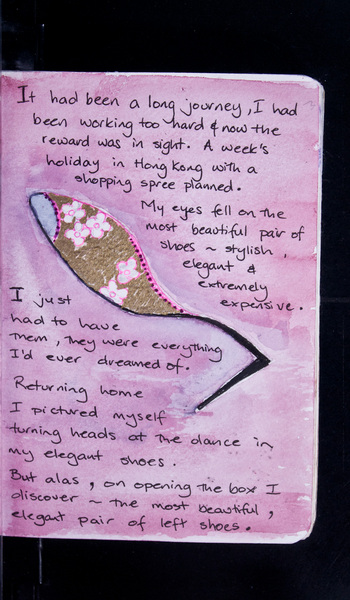 It had been a long journey, I had
been working too hard & now the
reward was in sight. A week's
holiday in Hong Kong with a
shopping spree planned.
My eyes fell on the
most beautiful pair of
shoes ~ stylish,
elegant &
extremely
expensive.
I just
had to have
them, they were everything
I'd ever dreamed of.
Returning home
I pictured myself
turning heads at the dance in
my elegant shoes.
But alas, on opening the box I
discover ~ the most beautiful,
elegant pair of left shoes.